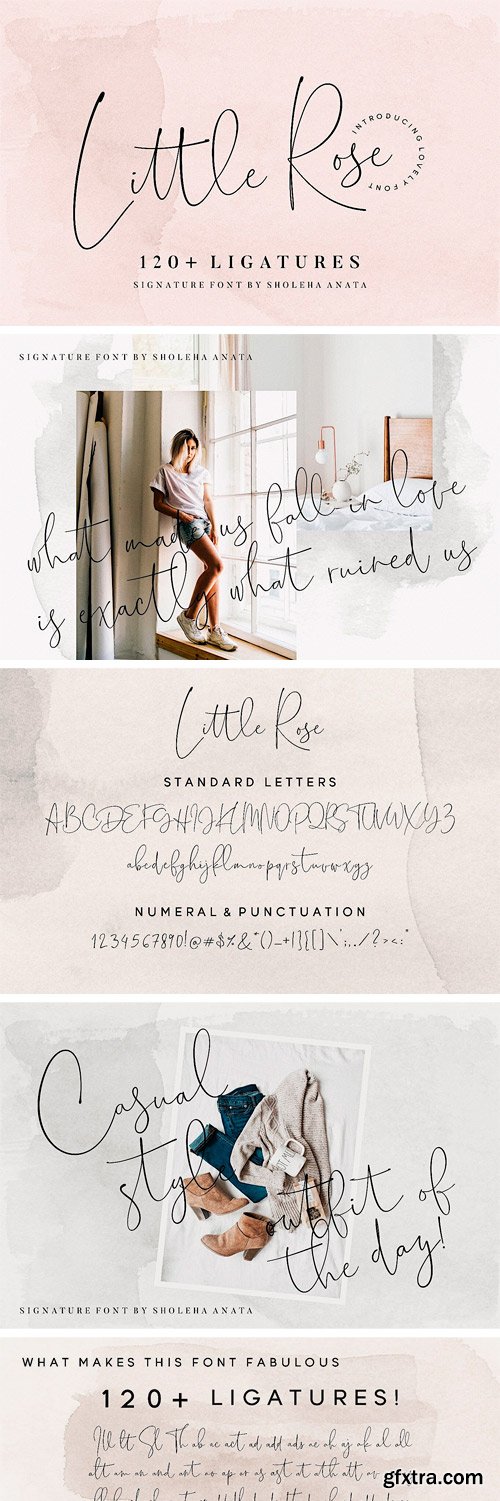 Little Rose
INTRODUCING LOVELY FONT
120+ LIGATURES
SIGNATURE FONT BY SHOLEHA ANATA
SIGNATURE FONT BY SHOLEHA ANATA
what made us fall in love
is exactly what ruined us
Little Rose
STANDARD LETTERS
ABCDEFGHIJKLMNOPQRSTUVWXYZ
abcdefghijklmnopqrstuvwxyz
NUMERAL & PUNCTUATION
1234567890!@#$%&*()_+|}{[]\';,./?><:"
Casual
style
outfit of
the day!
SIGNATURE FONT BY SHOLEHA ANATA
WHAT MAKES THIS FONT FABULOUS
120+ LIGATURES!
gfxtra.com